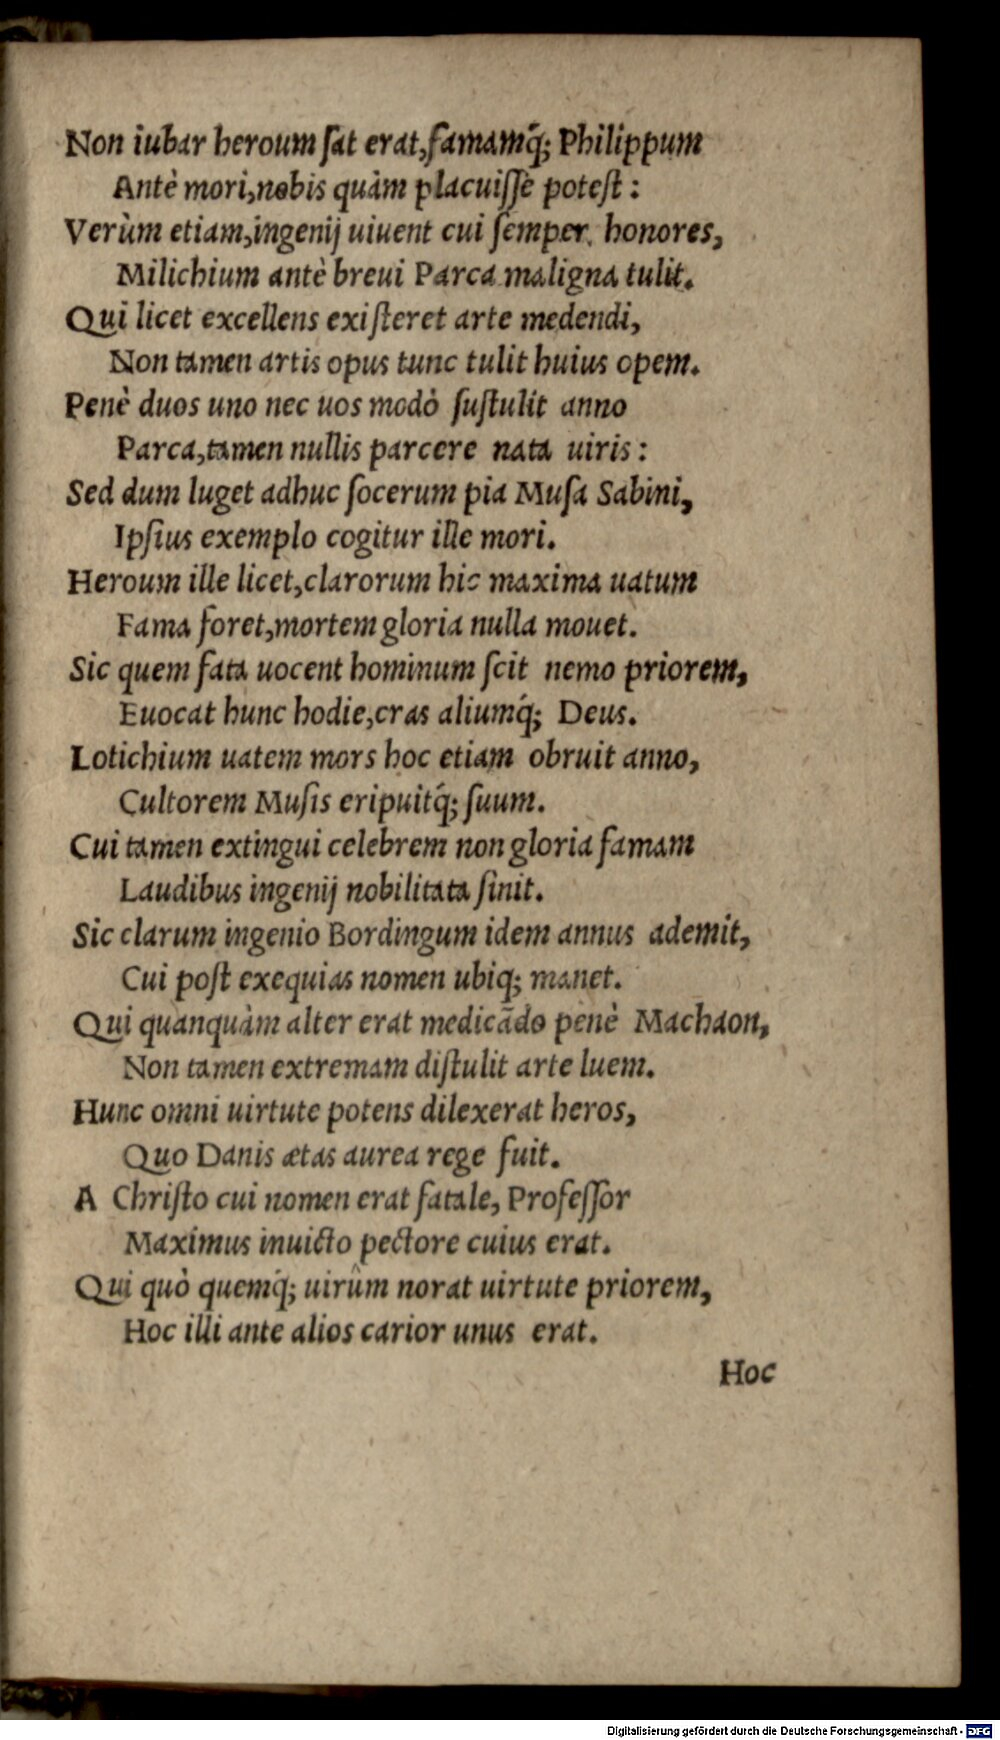 Non iubar heroum ſat erat,famamq́; Philippum
Antè mori,nobis quàm placuiſſe poteſt :
Verùm etiam,ingenij uiuent cui ſemper honores,
Milichium antè breui Parca maligna tulit.
Qui licet excellens exiſteret arte medendi,
Non tamen artis opus tunc tulit huius opem.
Penè duos uno nec uos modò ſuſtulit anno
Parca,tamen nullis parcere nata uiris :
Sed dum luget adhuc ſocerum pia Muſa Sabini,
Ipſius exemplo cogitur ille mori.
Heroum ille licet,clarorum hic maxima uatum
Fama foret,mortem gloria nulla mouet.
Sic quem fata uocent hominum ſcit nemo priorem,
Euocat hunc hodie,cras aliumq́; Deus.
Lotichium uatem mors hoc etiam obruit anno,
Cultorem Muſis eripuitq́; ſuum.
Cui tamen extingui celebrem non gloria famam
Laudibus ingenij nobilitata ſinit.
Sic clarum ingenio Bordingum idem annus ademit,
Cui poſt exequias nomen ubiq; manet.
Qui quanquàm alter erat medicãdo penè Machaon,
Non tamen extremam diſtulit arte luem.
Hunc omni uirtute potens dilexerat heros,
Quo Danis ætas aurea rege fuit.
A Chriſto cui nomen erat fatale, Profeſſor
Maximus inuicto pectore cuius erat.
Qui quò quemq́; uirûm norat uirtute priorem,
Hoc illi ante alios carior unus erat.
Hoc
Digitalisierung gefördert durch die Deutsche Forschungsgemeinschaft - DFG